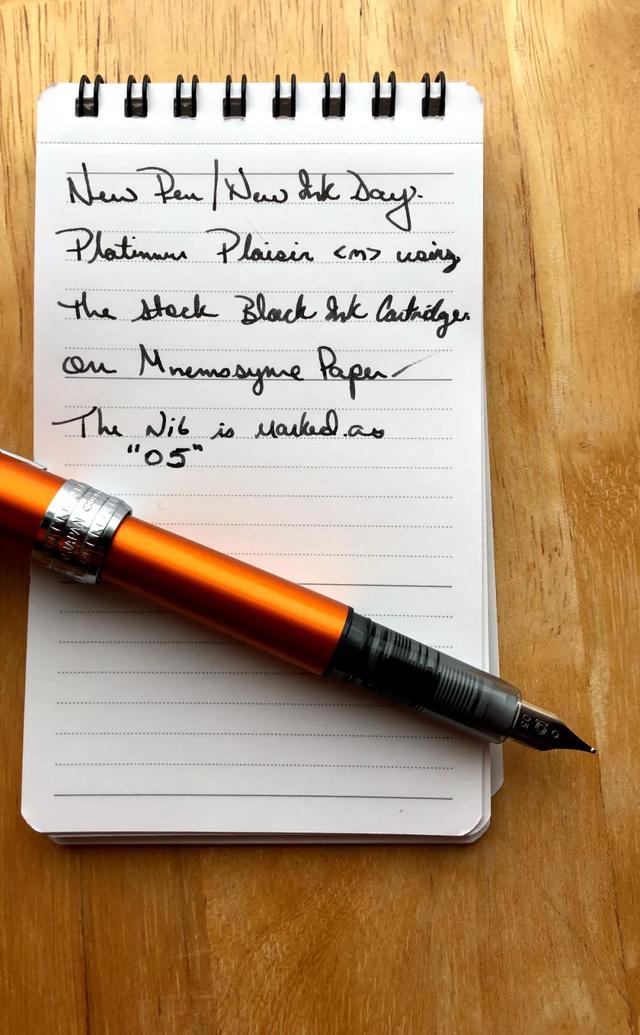 New Pen/New Ink Day.
Platinum Plaisir <m> using
The stock Black Ink Cartridge.
on Mnemosyne Paper-
The Nib is marked as
"05"
JAPAN
05